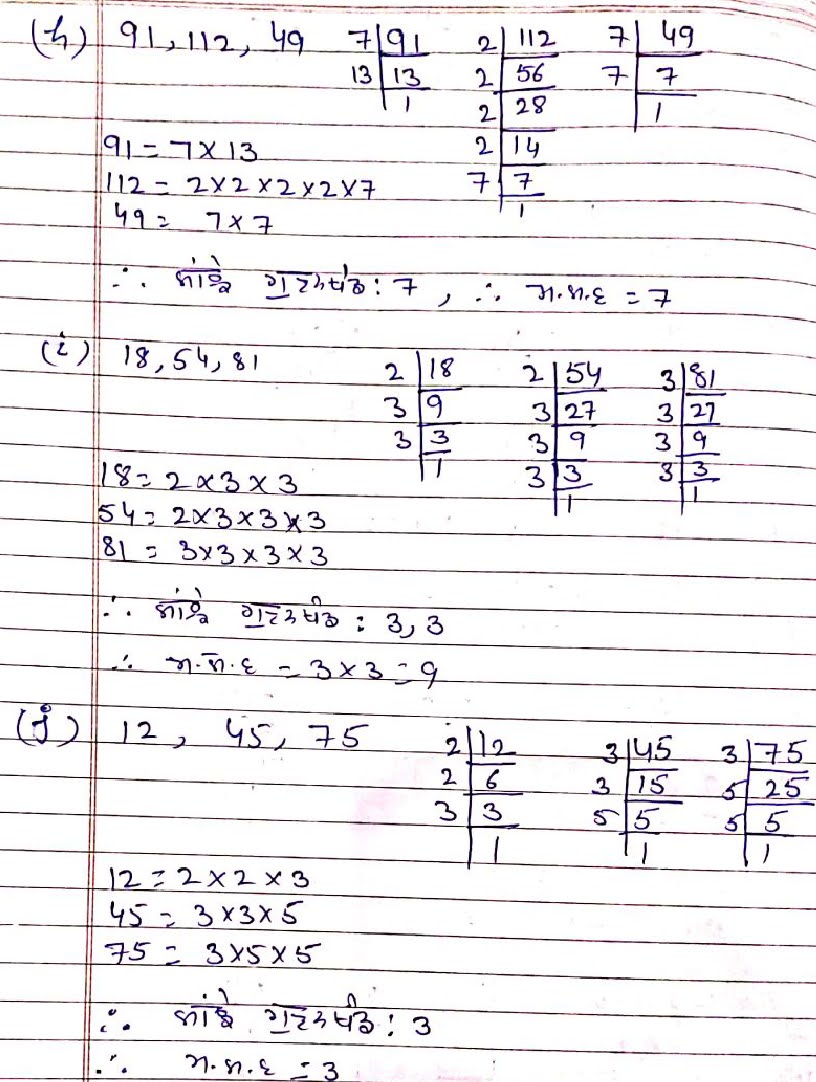 (h) 91, 112, 49 7|91 2|112 7|49
13|13 2|56 7|7
1 2|28 1
91 = 7 × 13 2|14
112 = 2 × 2 × 2 × 2 × 7 7|7
49 = 7 × 7 1
∴ ਸਾਂਝੇ ਗੁਣਨਖੰਡ : 7, ∴ ਮ.ਸ.ਵ = 7
(i) 18, 54, 81 2|18 2|54 3|81
3|9 3|27 3|27
3|3 3|9 3|9
18 = 2 × 3 × 3 1 3|3 3|3
54 = 2 × 3 × 3 × 3 1 1
81 = 3 × 3 × 3 × 3
∴ ਸਾਂਝੇ ਗੁਣਨਖੰਡ : 3, 3
∴ ਮ.ਸ.ਵ = 3 × 3 = 9
(j) 12, 45, 75 2|12 3|45 3|75
2|6 3|15 5|25
3|3 5|5 5|5
1 1 1
12 = 2 × 2 × 3
45 = 3 × 3 × 5
75 = 3 × 5 × 5
∴ ਸਾਂਝੇ ਗੁਣਨਖੰਡ : 3
∴ ਮ.ਸ.ਵ = 3